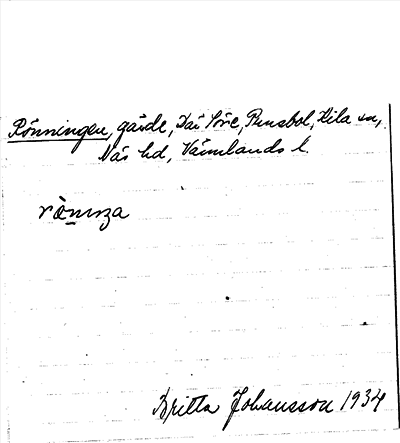 Rönningen, gärde, Där Före, Prusbol, Kila sn,
Näs hd, Värmlands l.
Britta Johansson 1934